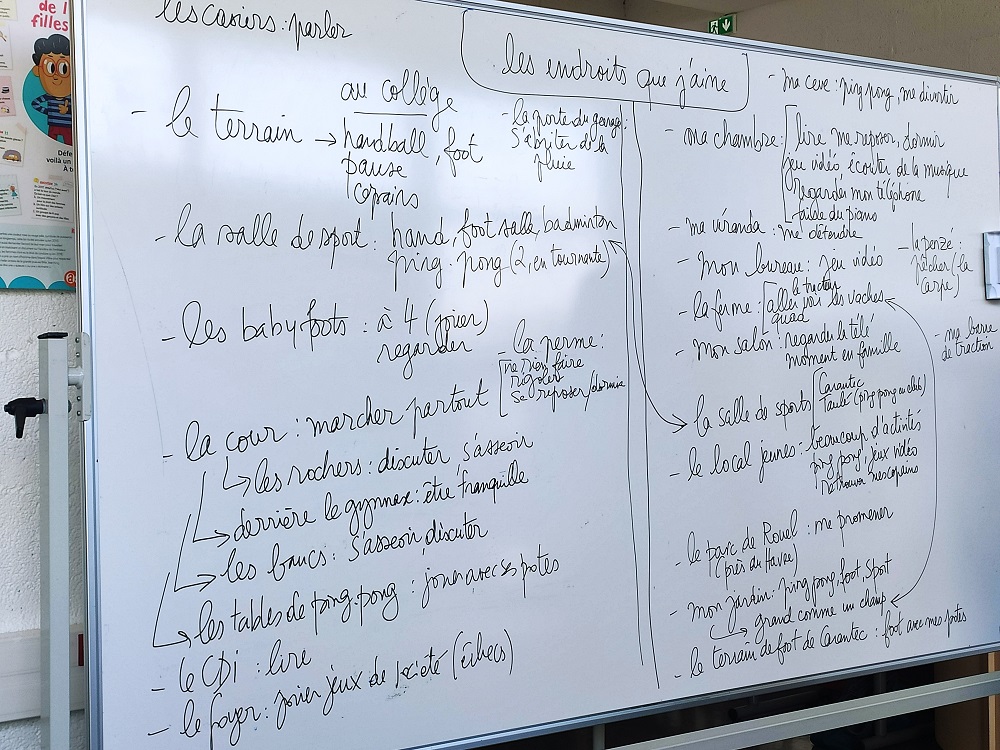 de l
filles
Défe
voilà un
À t
les casiers : parler
les endroits que j'aime
au collège
- le terrain → handball, foot
pause
copains
- la porte du garage :
s'abriter de la
pluie
- la salle de sport : hand, foot salle, badminton
ping-pong (2, en tournante)
- les babyfoots : à 4 (jouer)
regarder
- la perme :
ne rien faire
rigoler
se reposer/dormir
- la cour : marcher partout
↳ les rochers : discuter, s'asseoir
↳ derrière le gymnase : être tranquille
↳ les bancs : s'asseoir, discuter
↳ les tables de ping-pong : jouer avec ses potes
- le CDI : lire
- le foyer : jouer jeux de société (échecs)
- ma cave : ping pong, me divertir
- ma chambre : lire, me reposer, dormir
jeu vidéo, écouter de la musique
regarder mon téléphone
faire du piano
- ma véranda : me détendre
- mon bureau : jeu vidéo
- la penzé :
pêcher (la
carpe)
- la ferme : le tracteur
aller voir les vaches
quad
- mon salon : regarder la télé
moment en famille
- ma barre
de traction
- la salle de sports Carantec
Taulé (ping pong en club)
- le local jeunes : beaucoup d'activités
ping pong, jeux vidéo
retrouver mes copains
- le parc de Rouel : me promener
(près du Havre)
- mon jardin : ping pong, foot, sport
↳ grand comme un champ
- le terrain de foot de Carantec : foot avec mes potes